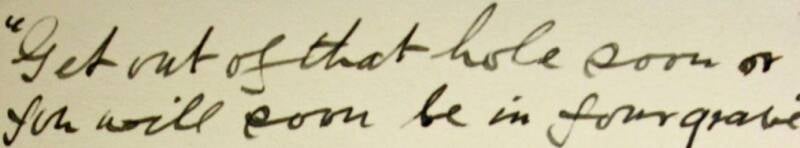 "Get out of that hole soon or
you will soon be in your grave